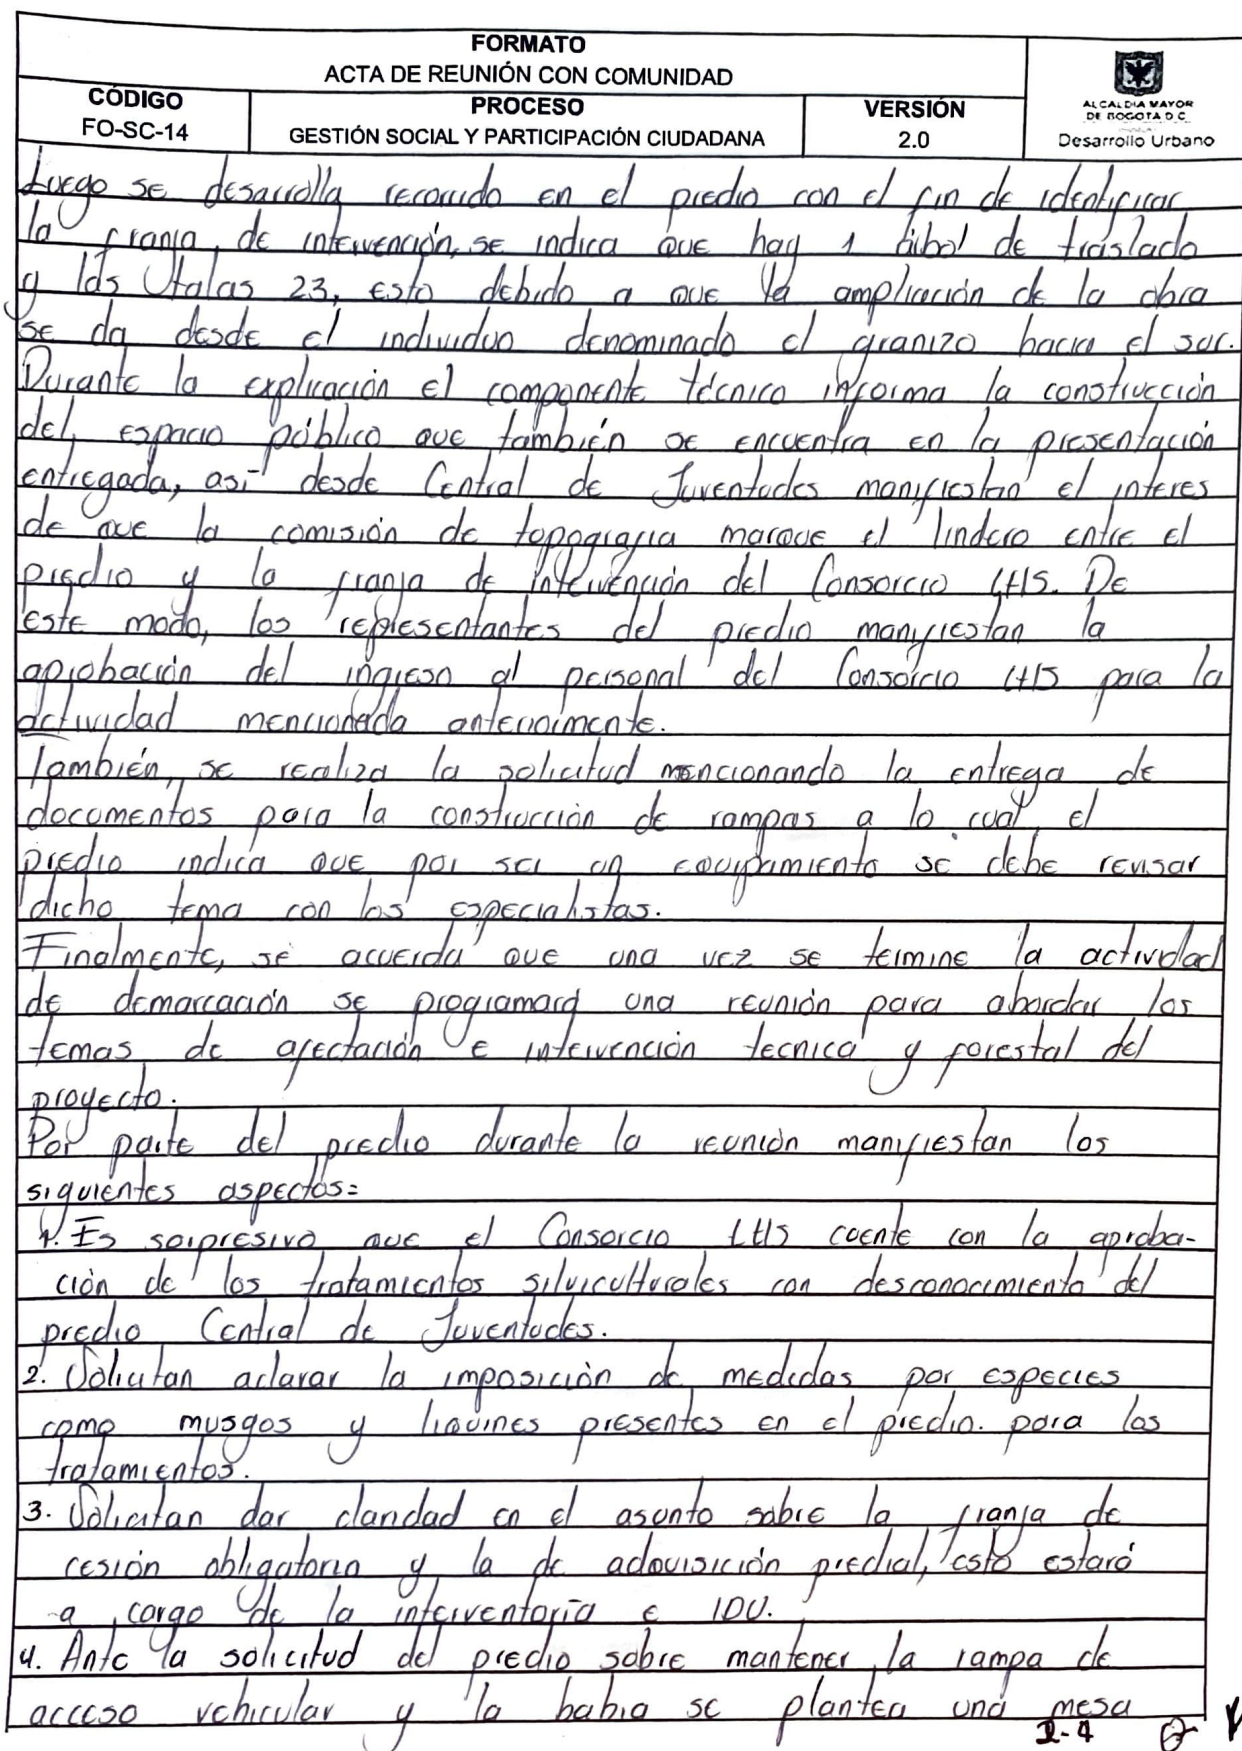 FORMATO
ACTA DE REUNIÓN CON COMUNIDAD
CÓDIGO
FO-SC-14
PROCESO
GESTIÓN SOCIAL Y PARTICIPACIÓN CIUDADANA
VERSIÓN
2.0
ALCALDIA MAYOR
DE BOGOTA D.C.
Desarrollo Urbano
Luego se desarrolla recorrido en el predio con el fin de identificar
la franja de intervención, se indica que hay 1 árbol de traslado
y las talas 23, esto debido a que la ampliación de la obra
se da desde el individuo denominado el granizo hacia el sur.
Durante la explicación el componente técnico informa la construcción
del espacio público que también se encuentra en la presentación
entregada, así desde Central de Juventudes manifiestan el interes
de que la comisión de topografia marque el lindero entre el
predio y la franja de intervención del Consorcio LHS. De
este modo, los representantes del predio manifiestan la
aprobación del ingreso al personal del Consorcio LHS para la
actividad mencionada anteriormente.
También, se realiza la solicitud mencionando la entrega de
documentos para la construcción de rampas a lo cual, el
predio indica que por ser un equipamiento se debe revisar
dicho tema con los especialistas.
Finalmente, se acuerda que una vez se termine la actividad
de demarcación se programará una reunión para abordar los
temas de afectación e intervención tecnica y forestal del
proyecto.
Por parte del predio durante la reunión manifiestan los
siguientes aspectos:
1. Es sorpresivo que el Consorcio LHS cuente con la aproba-
ción de los tratamientos silviculturales con desconocimiento del
predio Central de Juventudes.
2. Solicitan aclarar la imposición de medidas por especies
como musgos y liquines presentes en el predio. para los
tratamientos.
3. Solicitan dar claridad en el asunto sobre la franja de
cesión obligatoria y la de adquisición predial, esto estará
a cargo de la interventoría e IDU.
4. Ante la solicitud del predio sobre mantener la rampa de
acceso vehicular y la bahia se plantea una mesa
2-4